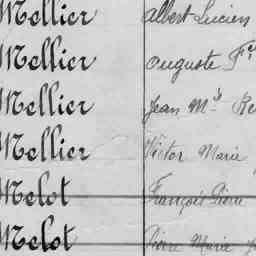 Mellier Albert Lucien
Mellier Auguste Fç
Mellier Jean Mie Re
Mellier Victor Marie
Melot François Pierre
Melot Pierre Marie